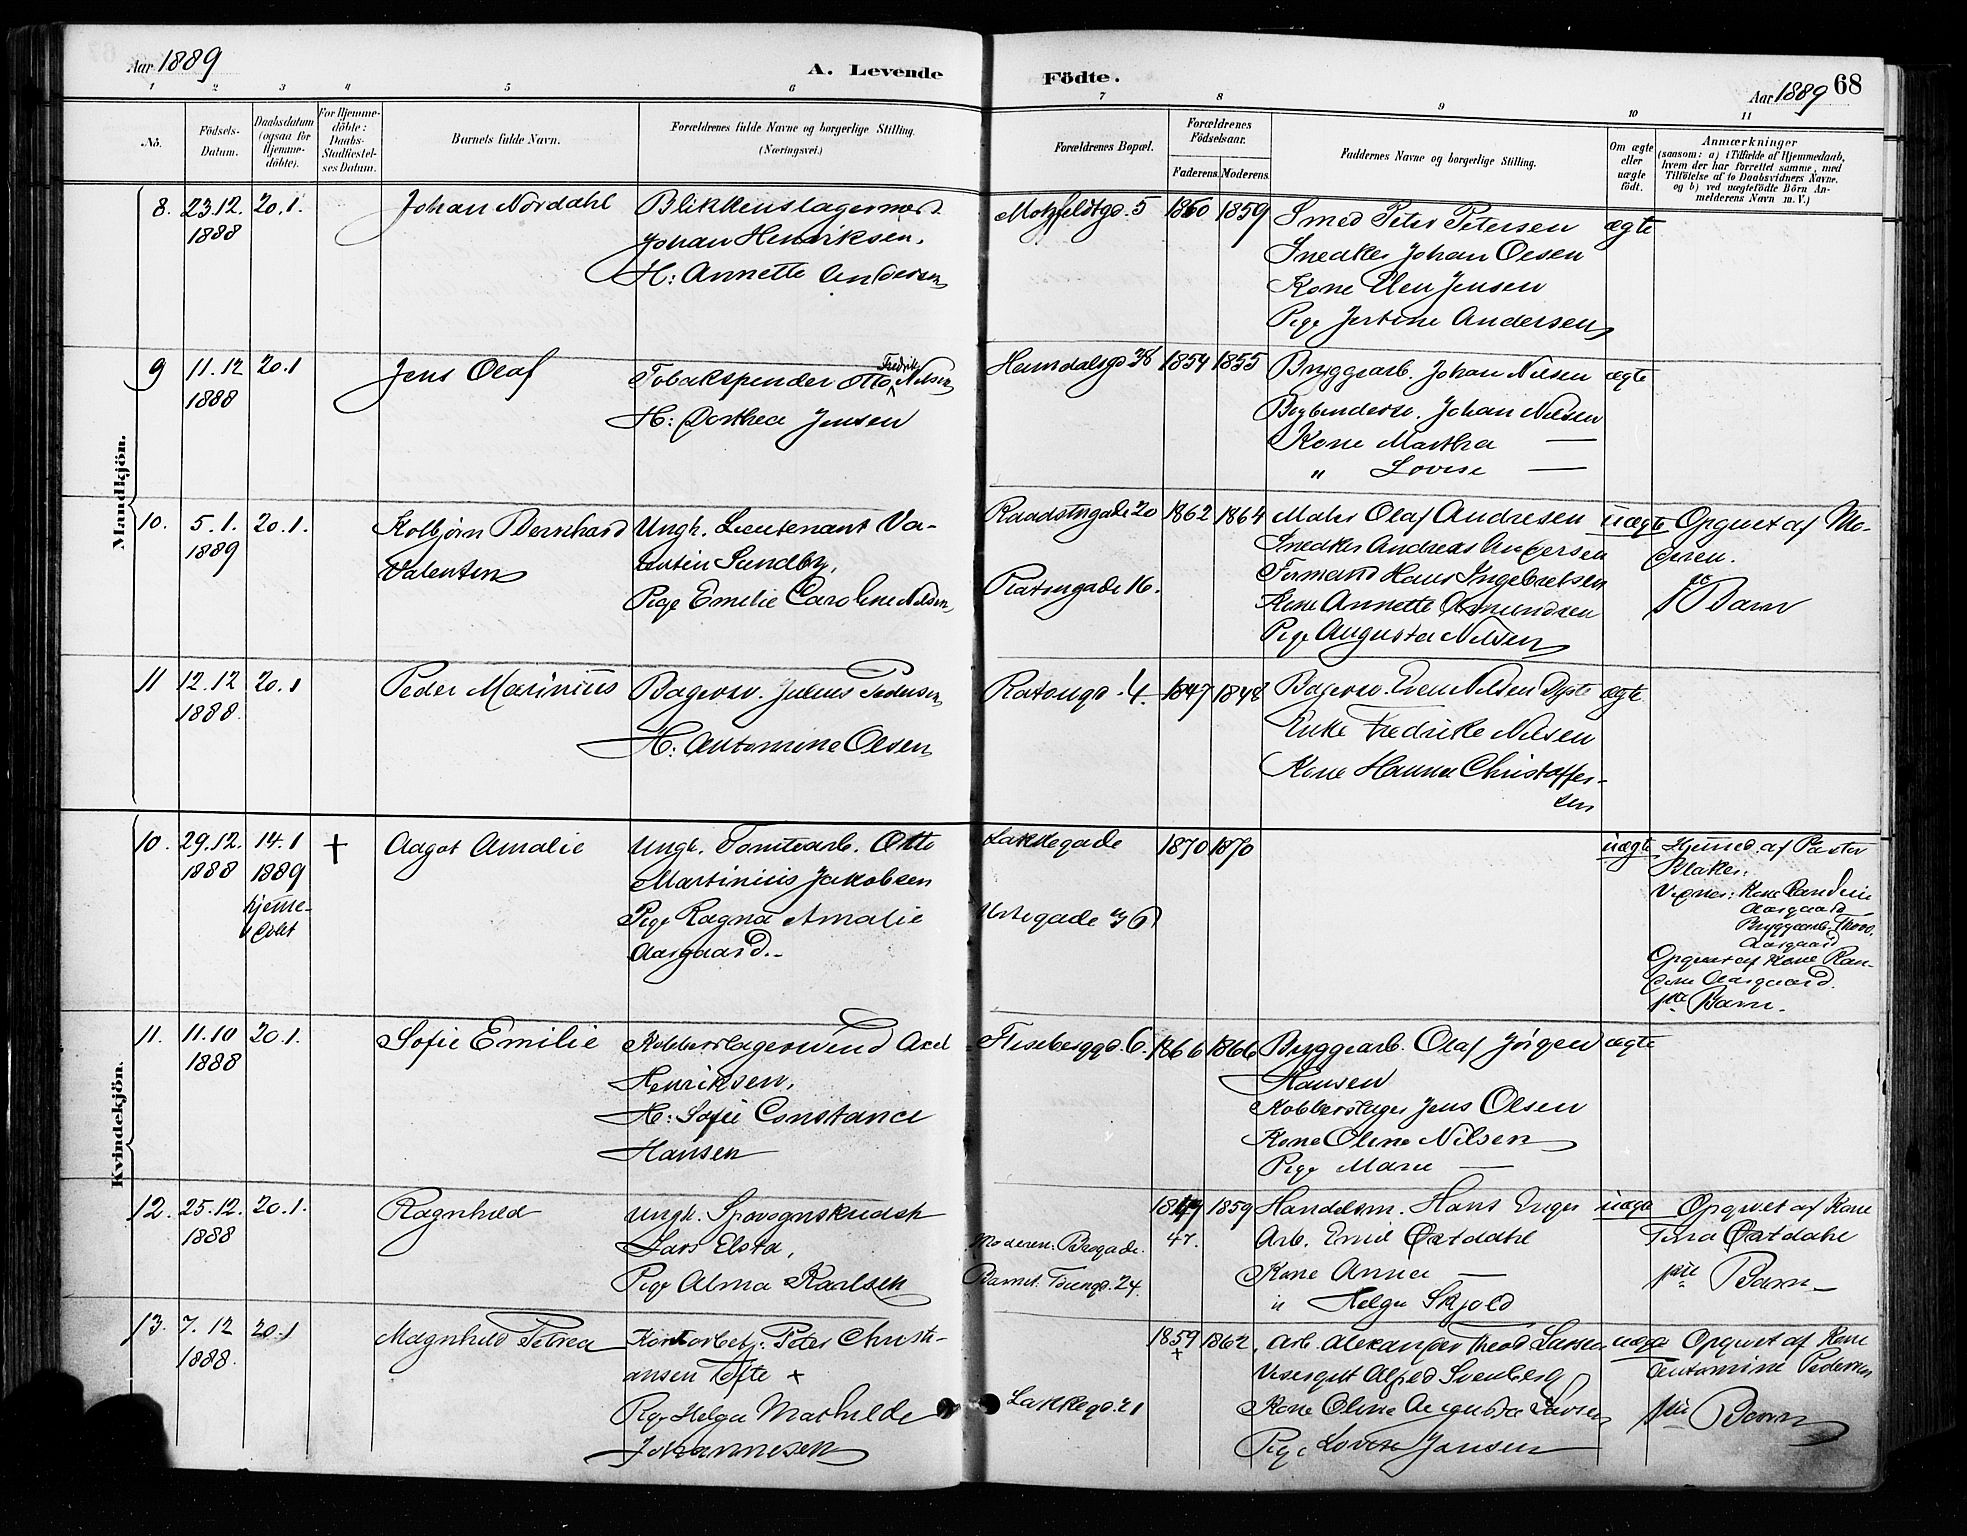 Aar 1889
A. Levende
Födte.
Aar 1889
68
1 2 3 4 5 6 7 8 9 10 11
No.
Födsels-
Datum.
Daabsdatum
(ogsaa for
Hjemme-
döbte).
For Hjemme-
döbte:
Daabs-
Stadfæstel-
ses Datum.
Barnets fulde Navn.
Forældrenes fulde Navne og borgerlige Stilling.
(Næringsvei.)
Forældrenes Bopæl.
Forældrenes
Födselsaar.
Faderens. Moderens.
Faddernes Navne og borgerlige Stilling.
Om ægte
eller
uægte
födt.
Anmærkninger
(saasom: a) i Tilfælde af Hjemmedaab,
hvem der har forrettet samme, med
Tilföielse af to Daabsvidners Navne.
og b) ved uægtefödte Börn An-
melderens Navn m. V.)
Mandkjön.
8. 23.12. 20.1.
1888
Johan Nordahl
Blikkenslagermest.
Johan Henriksen.
H: Annette Andersen
Motzfeldtgd. 5
1860 1859
Smed Peter Petersen
Snedker Johan Olsen
Kone Elen Jensen
Pige Jertine Andersen
ægte
9 11.12 20.1
1888
Jens Olaf
Tobakspinder Otto Fredrik Nilsen
H: Dorthea Jensen
Heimdalsgd 38
1854 1855
Bryggearb. Johan Nilsen
Johan Nilsen
Kone Martha —
" Lovise —
ægte
10. 5.1. 20.1.
1889
Kolbjørn Bernhard
Valentin
Ungk. Lieutenant Va-
lentin Sundby,
Pige Emilie Caroline Nilsen
Raadstugade 20
Platousgade 16.
1862 1864
Maler Olaf Andresen
Snedker Andreas Andersen
Formand Hans Ingebretsen
Kone Annette Amundsen
Pige Augusta Nilsen
uægte
Opgivet af Mo-
deren.
Barn
11 12.12 20.1
1888.
Peder Marinius
Bagersv. Julius Pedersen
H: Antomine Olsen
Platougd. 4.
1847 1848
Bagersv. Even Nilsen Dyste
Enke Fredrike Nilsen
Kone Hanna Christoffer-
sen
ægte
Kvindekjön.
10. 29.12. 14.1 +
1888 1889
hjemme-
døbt
Aagot Amalie
Ungk. Tomtearb. Otto
Martinius Jakobsen
Pige Ragna Amalie
Aasgaard.-
Lakkegade
Urtegade 36
1870 1870
uægte
Hjemmed. af Pastor
Blaker.
Vidner: Kone Randine
Aasgaard
Bryggearb. Thorv.
Aasgaard
Opgivet af Kone Ran-
dine Aasgaard.
Barn.
11. 11.10 20.1.
1888
Sofie Emilie
Kobberslagersvend Axel
Henriksen,
H: Sofie Constance
Hansen
Flisberggd. 6.
1866 1866
Bryggearb. Olaf Jörgen
Hansen
Kobberslager Jens Olsen
Kone Oline Nilsen
Pige Marie —
ægte
12. 25.12. 20.1.
1888
Ragnhild
Ungk. Sporvognskudsk
Lars Elsta,
Pige Alma Karlsen
Moderen:
Barnet: 24.
1849 1859
47.
Handelsm. Hans Enger
Arb. Emil Østdahl
Kone Anna —
" Helga Skjold
uægte
Opgivet af Kone
Tina Østdahl
Barn
13. 7.12 20.1
1888.
Magnhild Petrea
Kontorbetj. Peter Christi-
ansen Ofte +
Pige Helga Mathilde
Johannesen
Lakkegd. 21
1859 1862.
+
Arb. Alexander Theod. Larsen
Visergut Alfred Svenberg
Kone Oline Augusta Larsen
Pige Lovise Jansen
uægte
Opgivet af Kone
Antomine Pedersen
Barn